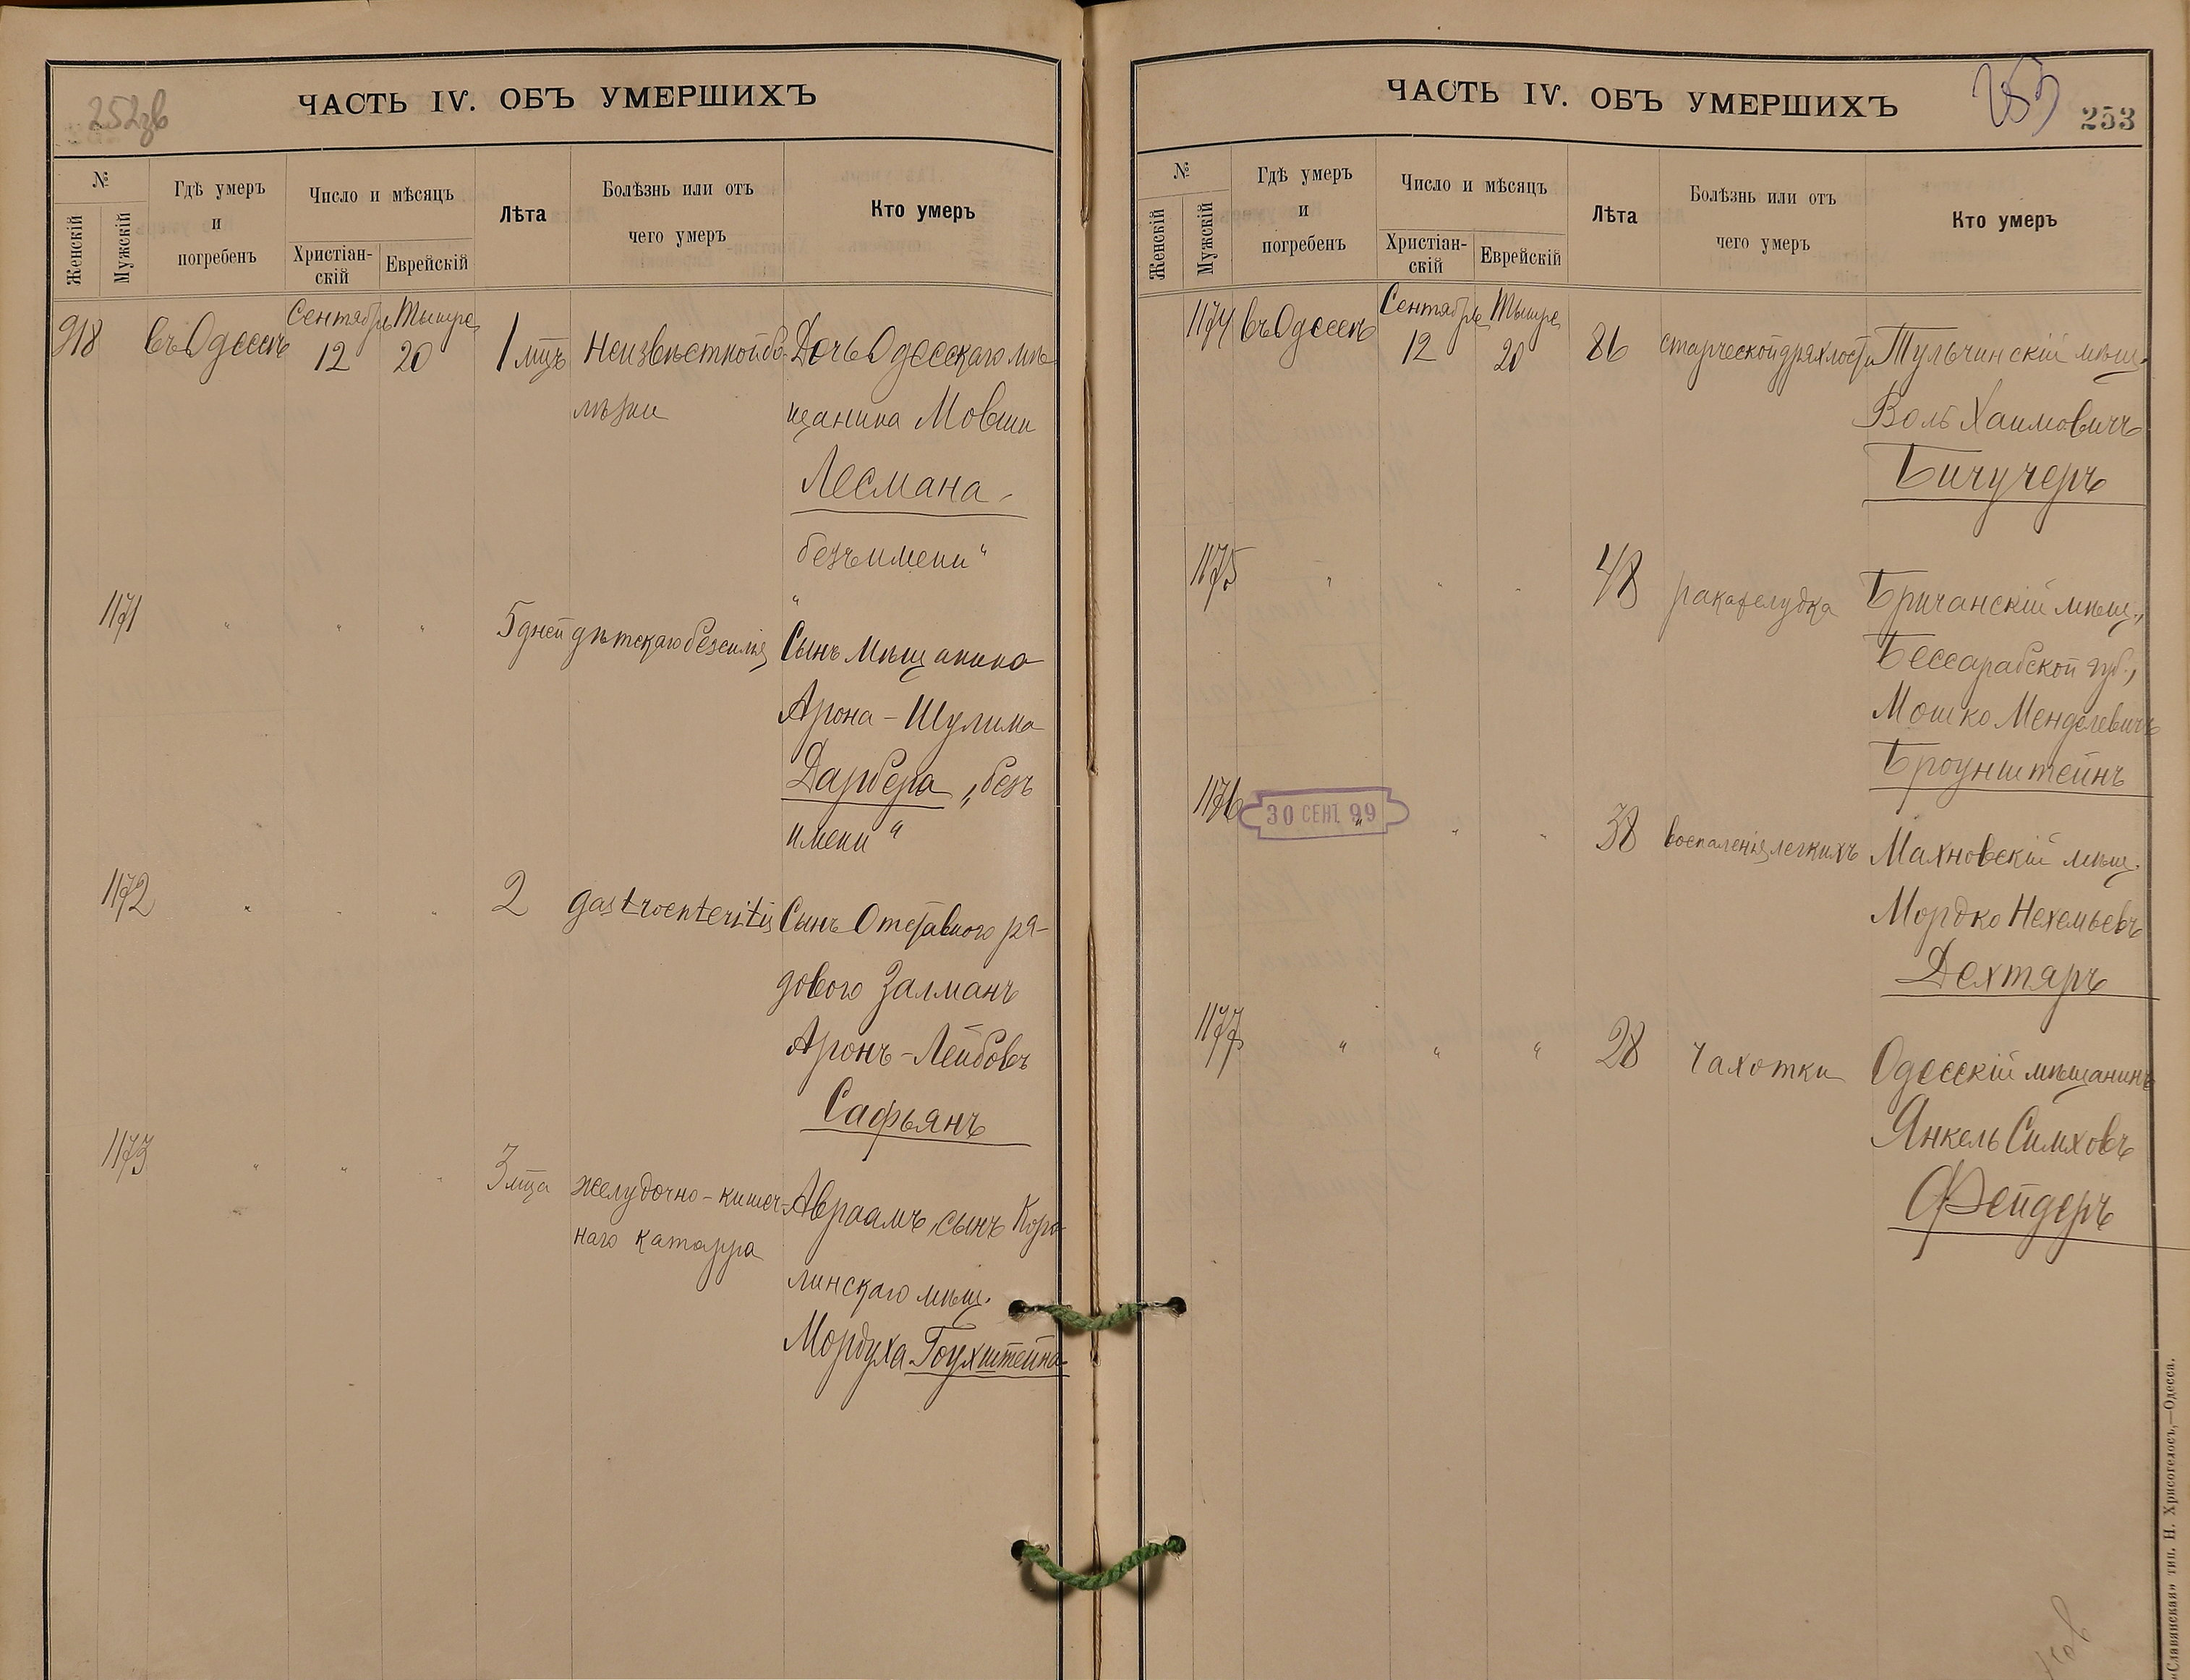 252зв
ЧАСТЬ IV. ОБЪ УМЕРШИХЪ
№
Женскій
Мужскій
Гдѣ умеръ
и
погребенъ
Число и мѣсяцъ
Христіан-
скій
Еврейскій
Лѣта
Болѣзнь или отъ
чего умеръ
Кто умеръ
918 въ Одессѣ Сентября 12 Тышре 20 1 мцъ Неизвѣстной бо- Дочь Одесскаго мѣ-
лѣзни щанина Мовши
Лесмана
безъ имени"
1171 " " " 5 дней дѣтскаго безсилія Сынъ мѣщанина
Арона-Шулима
Дарбера „безъ
имени"
1172 " " " 2 gastroenteritis Сынъ Отставного ря-
дового Залманъ
Аронъ-Лейбовъ
Сафьянъ
1173 " " " 3 мца желудочно-кишеч- Авраамъ, сынъ Коро-
наго катарра линскаго мѣщ.
Мордуха Гоухштейна
253
253
ЧАСТЬ IV. ОБЪ УМЕРШИХЪ
№
Женскій
Мужскій
Гдѣ умеръ
и
погребенъ
Число и мѣсяцъ
Христіан-
скій
Еврейскій
Лѣта
Болѣзнь или отъ
чего умеръ
Кто умеръ
1174 въ Одессѣ Сентября 12 Тышре 20 86 старческой дряхлости Тульчинскій мѣщ.
Воль Хаимовичъ
Бичучеръ
1175 " " " 48 рака желудка Бричанскій мѣщ.,
Бессарабской губ.,
Мошко Менделевичъ
Броунштейнъ
1176 " " " 38 воспаленія легкихъ Махновскій мѣщ.
30 СЕН. 99
Мордко Нехемьевъ
Дехтяръ
1177 " " " 28 Чахотки Одесскій мѣщанинъ
Янкель Симховъ
Фейдеръ
«Славянская» тип. Н. Хрисогелосъ,—Одесса.